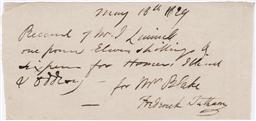 May 18th 1829
Received of Mr. J Linnell
one pound Eleven shillings &
sixpence for Homers Illiad
& Oddissey — for Mrs Blake
— Frederick Tatham